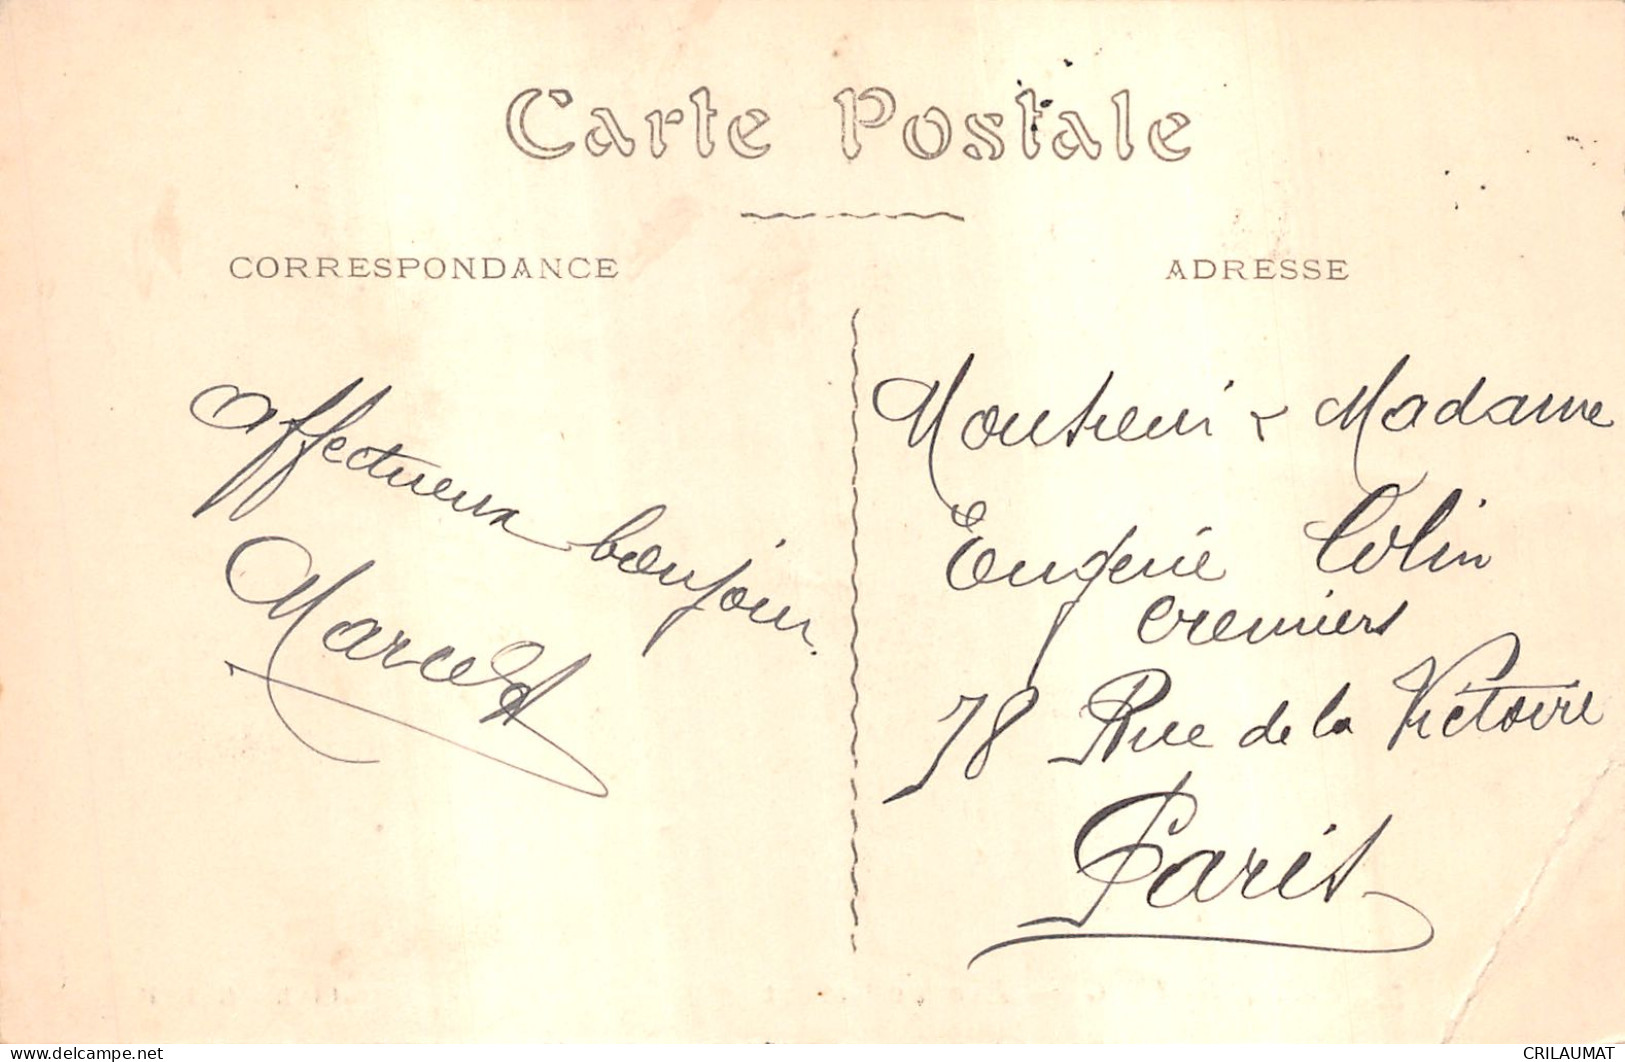 Carte Postale
CORRESPONDANCE
Affectueux bonjour.
Marcel
ADRESSE
Monsieur & Madame
Eugenie Colin
Cremiers
78 Rue de la Victoire
Paris
CRILAUMAT